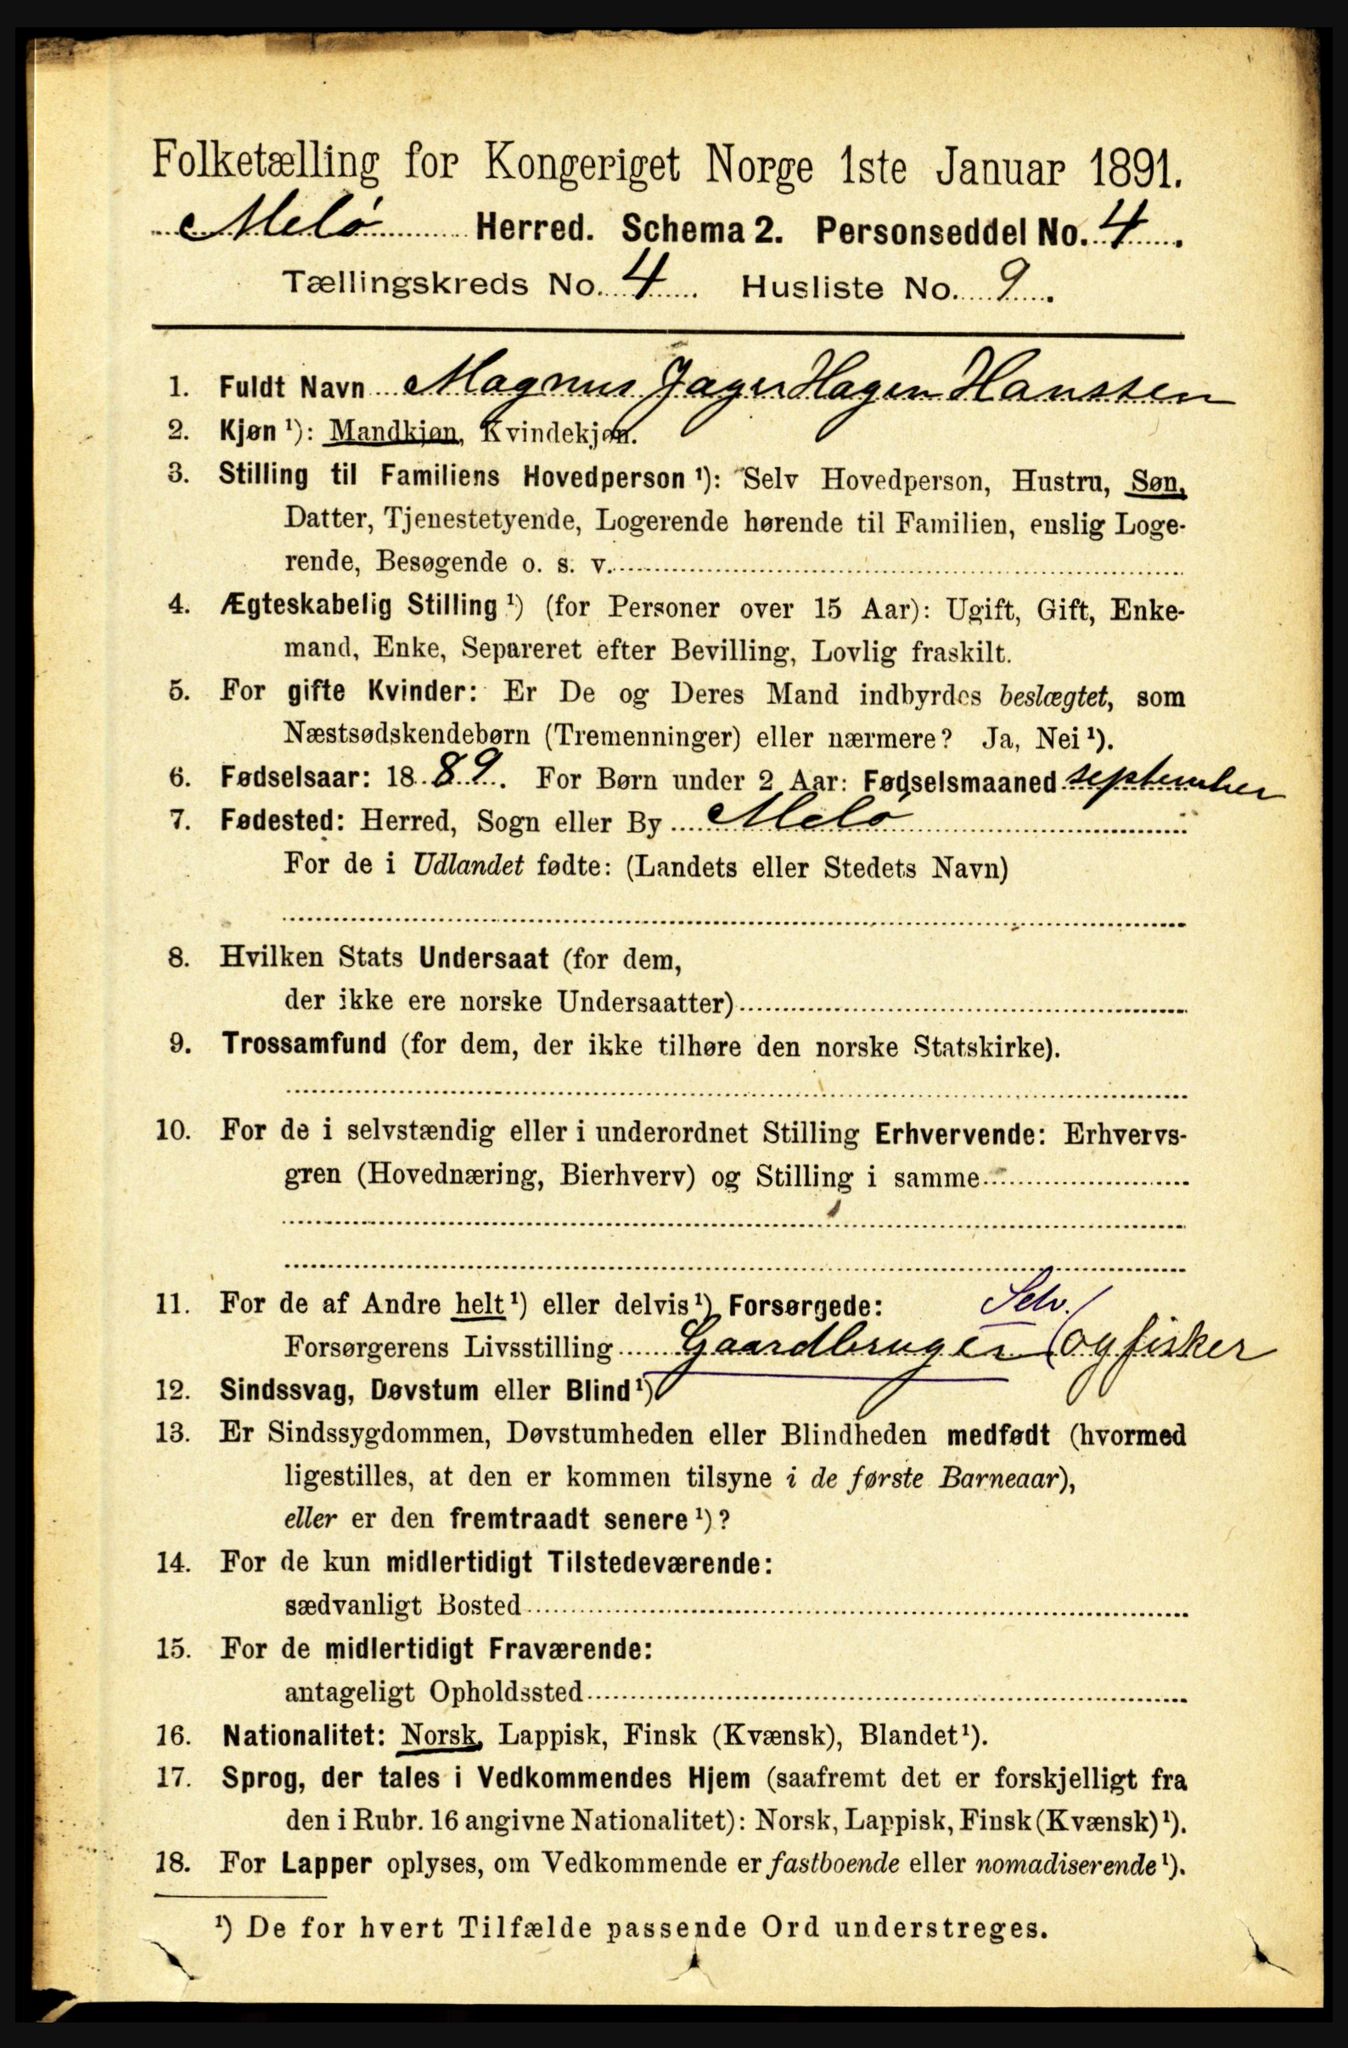 Folketælling for Kongeriget Norge 1ste Januar 1891.
Melø Herred. Schema 2. Personseddel No. 4.
Tællingskreds No. 4. Husliste No. 9.
1. Fuldt Navn Magnus Jager Hagen Hanssen
2. Kjøn ¹): Mandkjøn, Kvindekjøn.
3. Stilling til Familiens Hovedperson ¹): Selv Hovedperson, Hustru, Søn,
Datter, Tjenestetyende, Logerende hørende til Familien, enslig Loge-
rende, Besøgende o. s. v.
4. Ægteskabelig Stilling ¹) (for Personer over 15 Aar): Ugift, Gift, Enke-
mand, Enke, Separeret efter Bevilling, Lovlig fraskilt.
5. For gifte Kvinder: Er De og Deres Mand indbyrdes beslægtet, som
Næstsødskendebørn (Tremenninger) eller nærmere? Ja, Nei ¹).
6. Fødselsaar: 1889. For Børn under 2 Aar: Fødselsmaaned september
7. Fødested: Herred, Sogn eller By Melø
For de i Udlandet fødte: (Landets eller Stedets Navn)
8. Hvilken Stats Undersaat (for dem,
der ikke ere norske Undersaatter)
9. Trossamfund (for dem, der ikke tilhøre den norske Statskirke).
10. For de i selvstændig eller i underordnet Stilling Erhvervende: Erhvervs-
gren (Hovednæring, Bierhverv) og Stilling i samme
11. For de af Andre helt ¹) eller delvis ¹) Forsørgede: Selv.
Forsørgerens Livsstilling Gaardbruger og fisker
12. Sindssvag, Døvstum eller Blind ¹)
13. Er Sindssygdommen, Døvstumheden eller Blindheden medfødt (hvormed
ligestilles, at den er kommen tilsyne i de første Barneaar),
eller er den fremtraadt senere ¹)?
14. For de kun midlertidigt Tilstedeværende:
sædvanligt Bosted
15. For de midlertidigt Fraværende:
antageligt Opholdssted
16. Nationalitet: Norsk, Lappisk, Finsk (Kvænsk), Blandet ¹).
17. Sprog, der tales i Vedkommendes Hjem (saafremt det er forskjelligt fra
den i Rubr. 16 angivne Nationalitet): Norsk, Lappisk, Finsk (Kvænsk) ¹).
18. For Lapper oplyses, om Vedkommende er fastboende eller nomadiserende ¹).
¹) De for hvert Tilfælde passende Ord understreges.